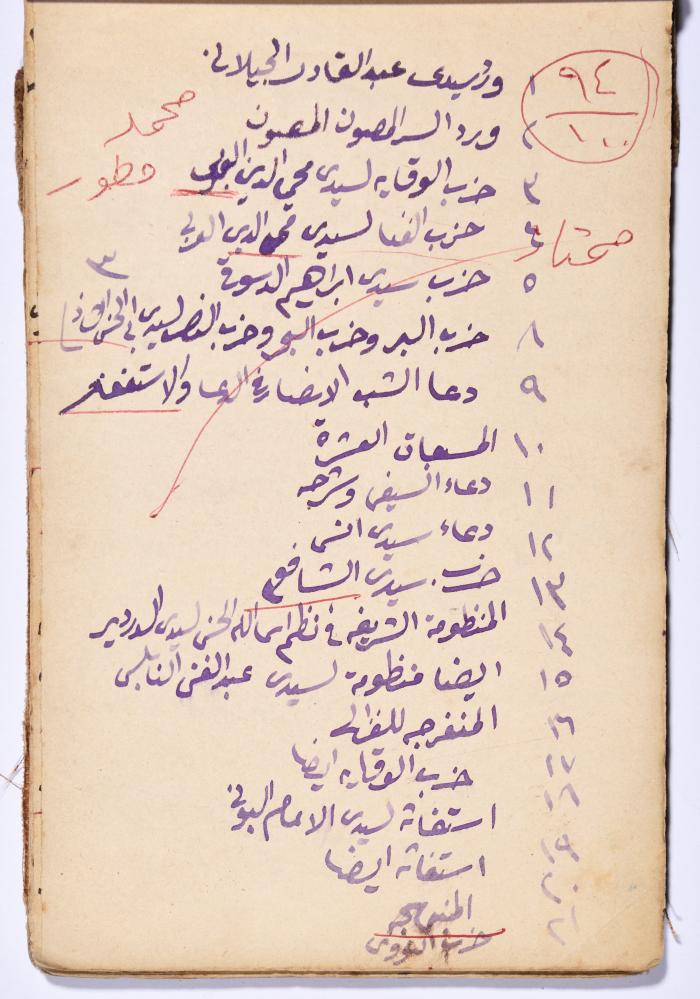 ٩٤
١٠٠
محمد
مختار
٣
١ ورد سيدى عبد القادر الجيلانى
٢ ورد السر المصون المصون
٣ حزب الوقايه لسيدى محي الدين
٤ حزب الفنا لسيدي محي الدين العربي
٥ حزب سيدى ابراهيم الدسوقى
٨ حزب البر وحزب البحر وحزب النصر لسيدى ابى الحسن
٩ دعا الشب الانصار فى الدعا والاستغفار
١٠ المسبعات العشرة
١١ دعاء السيفى وشرحه
١٢ دعاء سيدى انس
١٣ حزب سيدى الشافعى
١٤ المنظومة الشريفه فى نظم اسما الله الحسنى لسيدى الدردير
١٥ ايضا منظومة لسيدى عبد الغنى النابلسى
١٦ المنفرجه للغزالى
١٧ حزب الوقايه ايضا
١٨ استغاثه لسيدى الامام البونى
١٩ استغاثه ايضا
٢٠ المنبهجه
٢١ حزب النووى